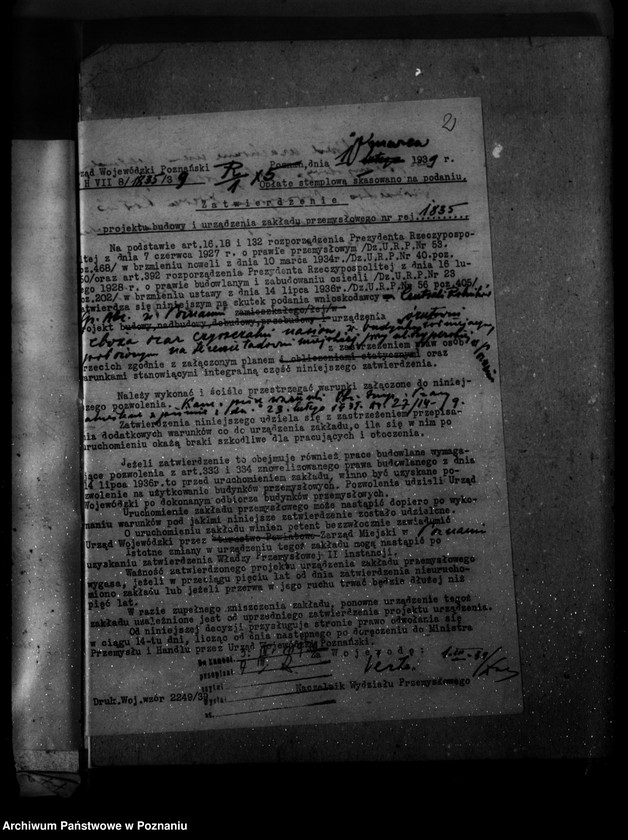 2)
10 marca
rząd Wojewódzki Poznański Poznań, dnia lutego 1939 r.
H VII 8/1835/39 Opłatę stemplową skasowano na podaniu.
Zatwierdzenie
projektu budowy i urządzenia zakładu przemysłowego nr rej. 1835
Na podstawie art.16,18 i 132 rozporządzenia Prezydenta Rzeczypospo-
litej z dnia 7 czerwca 1927 o prawie przemysłowym /Dz.U.R.P.Nr 53,
poz.468/ w brzmieniu noweli z dnia 10 marca 1934r./Dz.U.R.P.Nr 40.poz.
oraz art.392 rozporządzenia Prezydenta Rzeczypospolitej z dnia 16 lu-
tego 1928 r. o prawie budowlanym i zabudowaniu osiedli /Dz.U.R.P.Nr 23
poz.202/ w brzmieniu ustawy z dnia 14 lipca 1936r./Dz.U.R.P.Nr 56 poz.405/
zatwierdza się niniejszym na skutek podania wnioskodawcy Centrali Rolników
w Poznaniu zamieszkałego/łej/w
projekt budowy,nadbudowy,dobudowy,przebudowy i urządzenia
zboża oraz czyszczalni nasion, w budynku
na
z zastrzeżeniem praw osób
trzecich zgodnie z załączonym planem i obliczeniami statycznymi oraz
warunkami stanowiącymi integralną część niniejszego zatwierdzenia.
Należy wykonać i ściśle przestrzegać warunki załączone do niniej-
szego pozwolenia.
z dn. 23. lutego
Zatwierdzenia niniejszego udziela się z zastrzeżeniem przepisa-
nia dodatkowych warunków co do urządzenia zakładu,o ile się w nim po
uruchomieniu okażą braki szkodliwe dla pracujących i otoczenia.
Jeżeli zatwierdzenie to obejmuje również prace budowlane wymaga-
jące pozwolenia z art.333 i 334 znowelizowanego prawa budowlanego z dnia
14 lipca 1936r.to przed uruchomieniem zakładu, winno być uzyskane po-
zwolenie na użytkowanie budynków przemysłowych. Pozwolenia udzieli Urząd
Wojewódzki po dokonanym odbiorze budynków przemysłowych.
Uruchomienie zakładu przemysłowego może nastąpić dopiero po wyko-
naniu warunków pod jakimi niniejsze zatwierdzenie zostało udzielone.
O uruchomieniu zakładu winien petent bezzwłocznie zawiadomić
Urząd Wojewódzki przez Starostwo Powiatowe Zarząd Miejski w Poznaniu
Istotne zmiany w urządzeniu tegoż zakładu mogą nastąpić po
uzyskaniu zatwierdzenia Władzy Przemysłowej II instancji.
Ważność zatwierdzonego projektu urządzenia zakładu przemysłowego
wygasa, jeżeli w przeciągu pięciu lat od dnia zatwierdzenia nieurucho-
miono zakładu lub jeżeli przerwa w jego ruchu trwać będzie dłużej niż
pięć lat.
W razie zupełnego zniszczenia zakładu, ponowne urządzenie tegoż
zakładu uzależnione jest od uprzedniego zatwierdzenia projektu urządzenia.
Od niniejszej decyzji przysługuje stronie prawo odwołania się
w ciągu 14-tu dni, licząc od dnia następnego po doręczeniu do Ministra
Przemysłu i Handlu przez Urząd Wojewódzki Poznański.
Wojewoda:
Naczelnik Wydziału Przemysłowego
Druk.Woj.wzór 2249/39
Archiwum Państwowe w Poznaniu